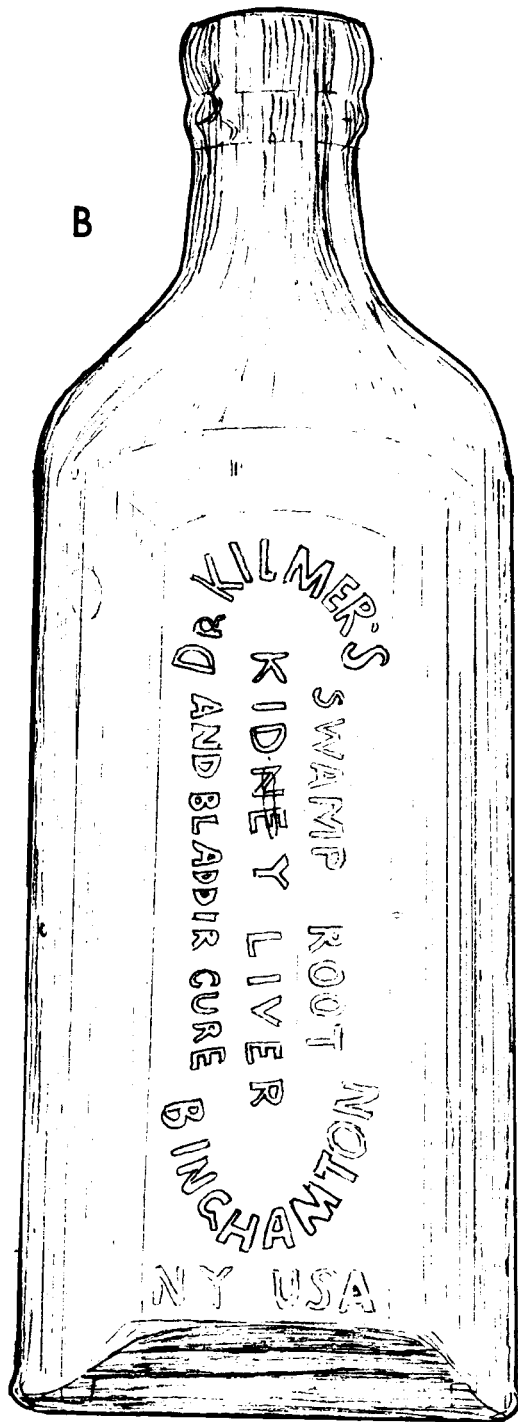 B
DR KILMER'S
SWAMP ROOT
KIDNEY LIVER
AND BLADDIR CURE
BINGHAMTON
NY USA